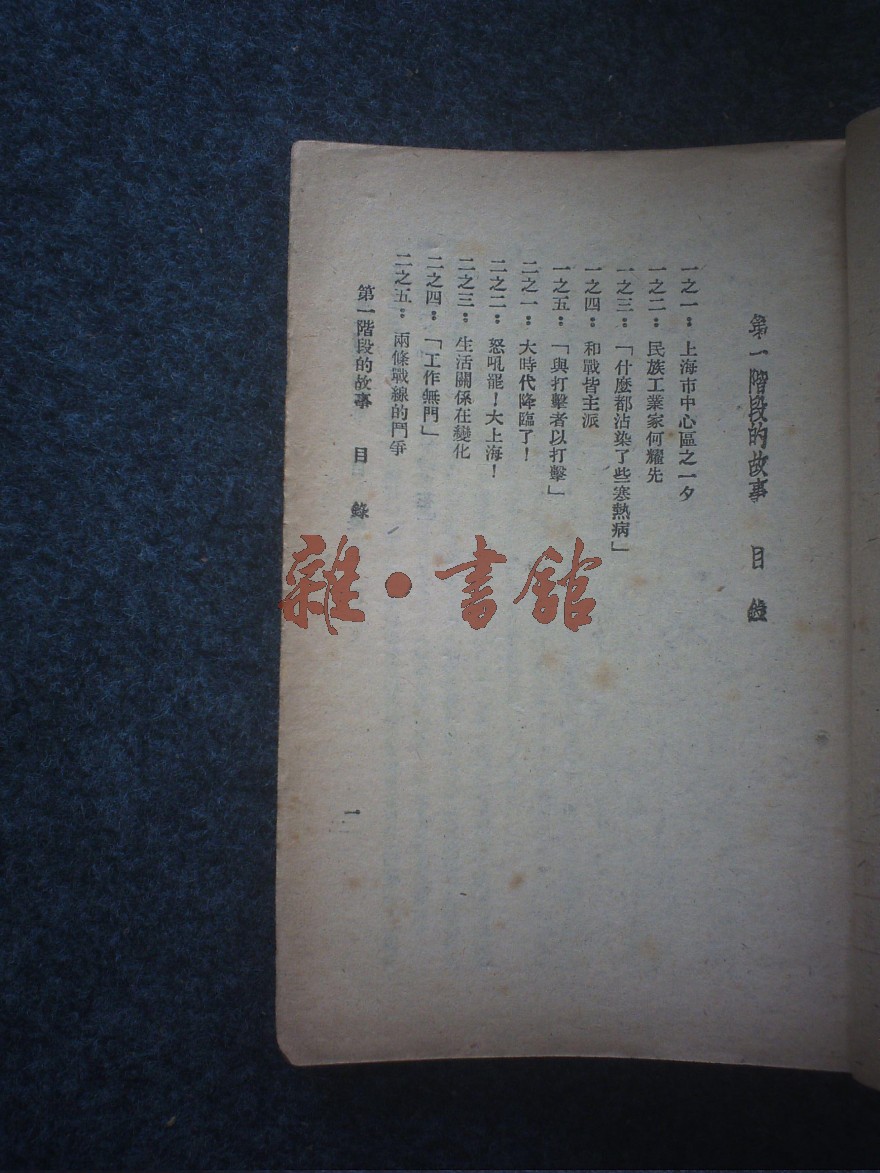 第一階段的故事 目錄
一之一： 上海市中心區之一夕
一之二： 民族工業家何耀先
一之三： 「什麼都沾染了些寒熱病」
一之四： 和戰皆主派
一之五： 「與打擊者以打擊」
二之一： 大時代降臨了！
二之二： 怒吼罷！大上海！
二之三： 生活關係在變化
二之四： 「工作無門」
二之五： 兩條戰線的鬥爭
第一階段的故事 目錄
一
雜·書館